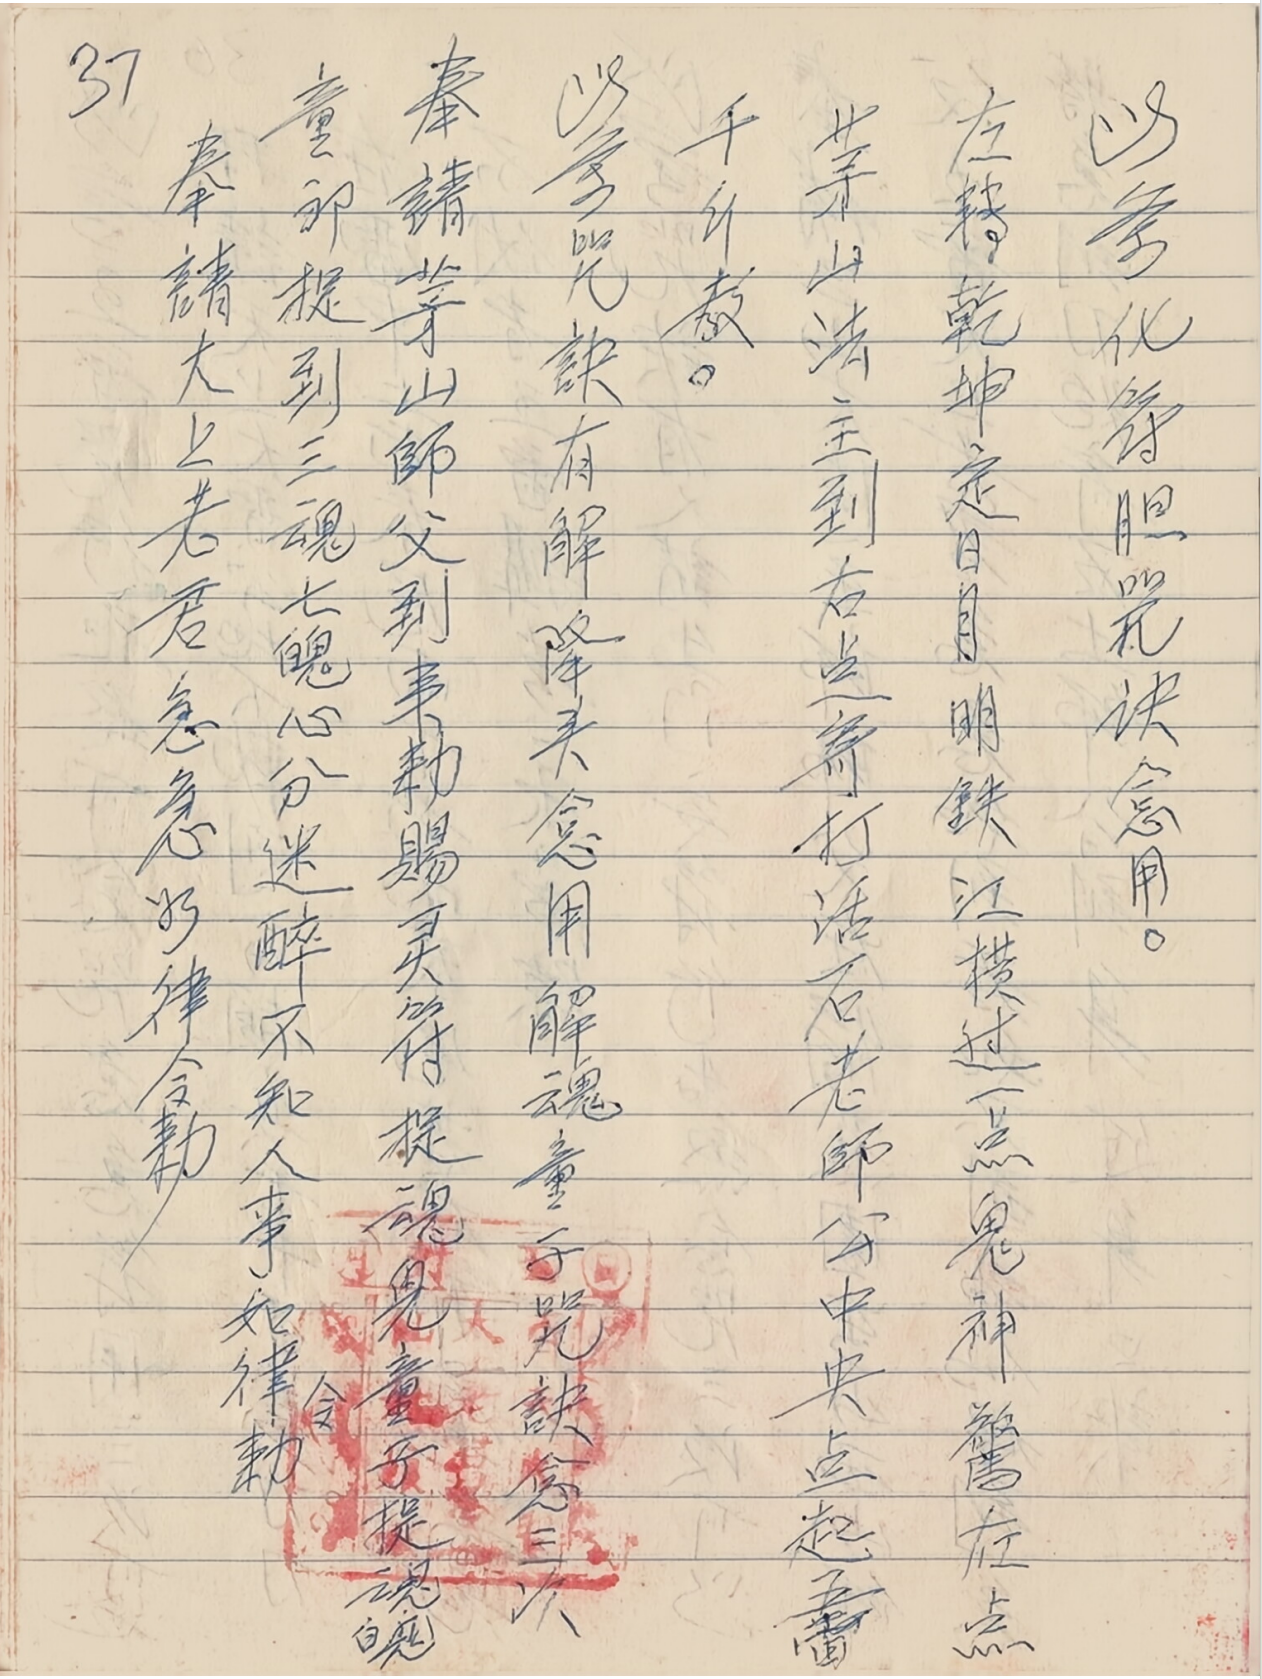 以条化符胆咒诀念用。
左转乾坤定日月明鉄江横过一点鬼神驚左点
茅山法主到右点斎打活石老師公中央点起五雷
千斤教。
以条咒訣有解降头念用解魂童子咒訣念三次
奉請茅山師父到来勅賜灵符捉魂児童子捉魂魄
童郎捉到三魂七魄心分迷醉不知人事如律令勅
奉請太上老君急急如律令勅
37